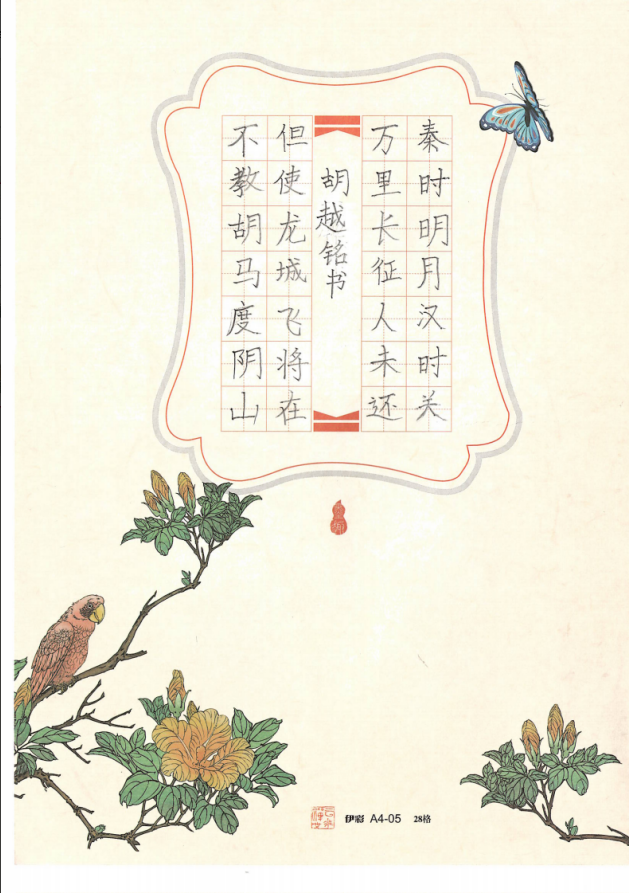 秦时明月汉时关
万里长征人未还
胡越铭书
但使龙城飞将在
不教胡马度阴山
伊彩 A4-05 28格